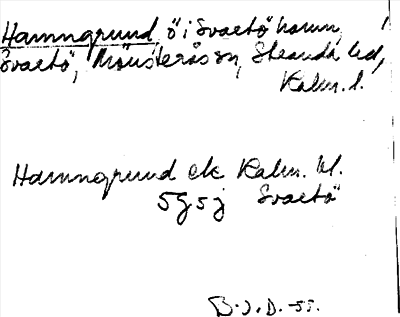 Hamngrund, ö i Svartö hamn,
Svartö, Mönsterås sn, Stranda hd,
Kalm. l.
Hamngrund ek Kalm. bl.
5g5j Svartö
B.J.D. -55.